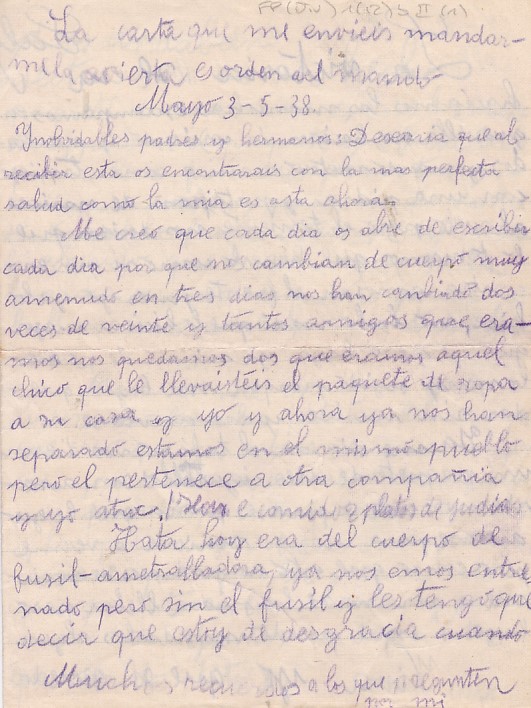 FP(DV)1(12)5 II (1)
La carta que me envieis mandar-
mela avierta es orden del mando
Mayo 3-5-38
Ynolvidables padres y hermanos: Desearia que al
recibir esta os encontrarais con la mas perfecta
salud como la mia es asta ahora.
Me creo que cada dia os abre de escribir
cada dia por que nos cambian de cuerpo muy
amenudo en tres dias nos han canbiado dos
veces de veinte y tantos amigos que era-
mos nos quedamos dos que éramos aquel
chico que le llevaistéis el paquete de ropa
a su casa y yo y ahora ya nos han
separado estamos en el mismo pueblo
pero el pertenece a otra compañia
y yo atra. Hoy e comido 2 platos de judias
Hata hoy era del cuerpo de
fusil-ametralladora, ya nos emos entre
nado pero sin el fusil y les tengo que
decir que estoy de desgracia cuando
Muchos recuerdos a los que pregunten
por mi